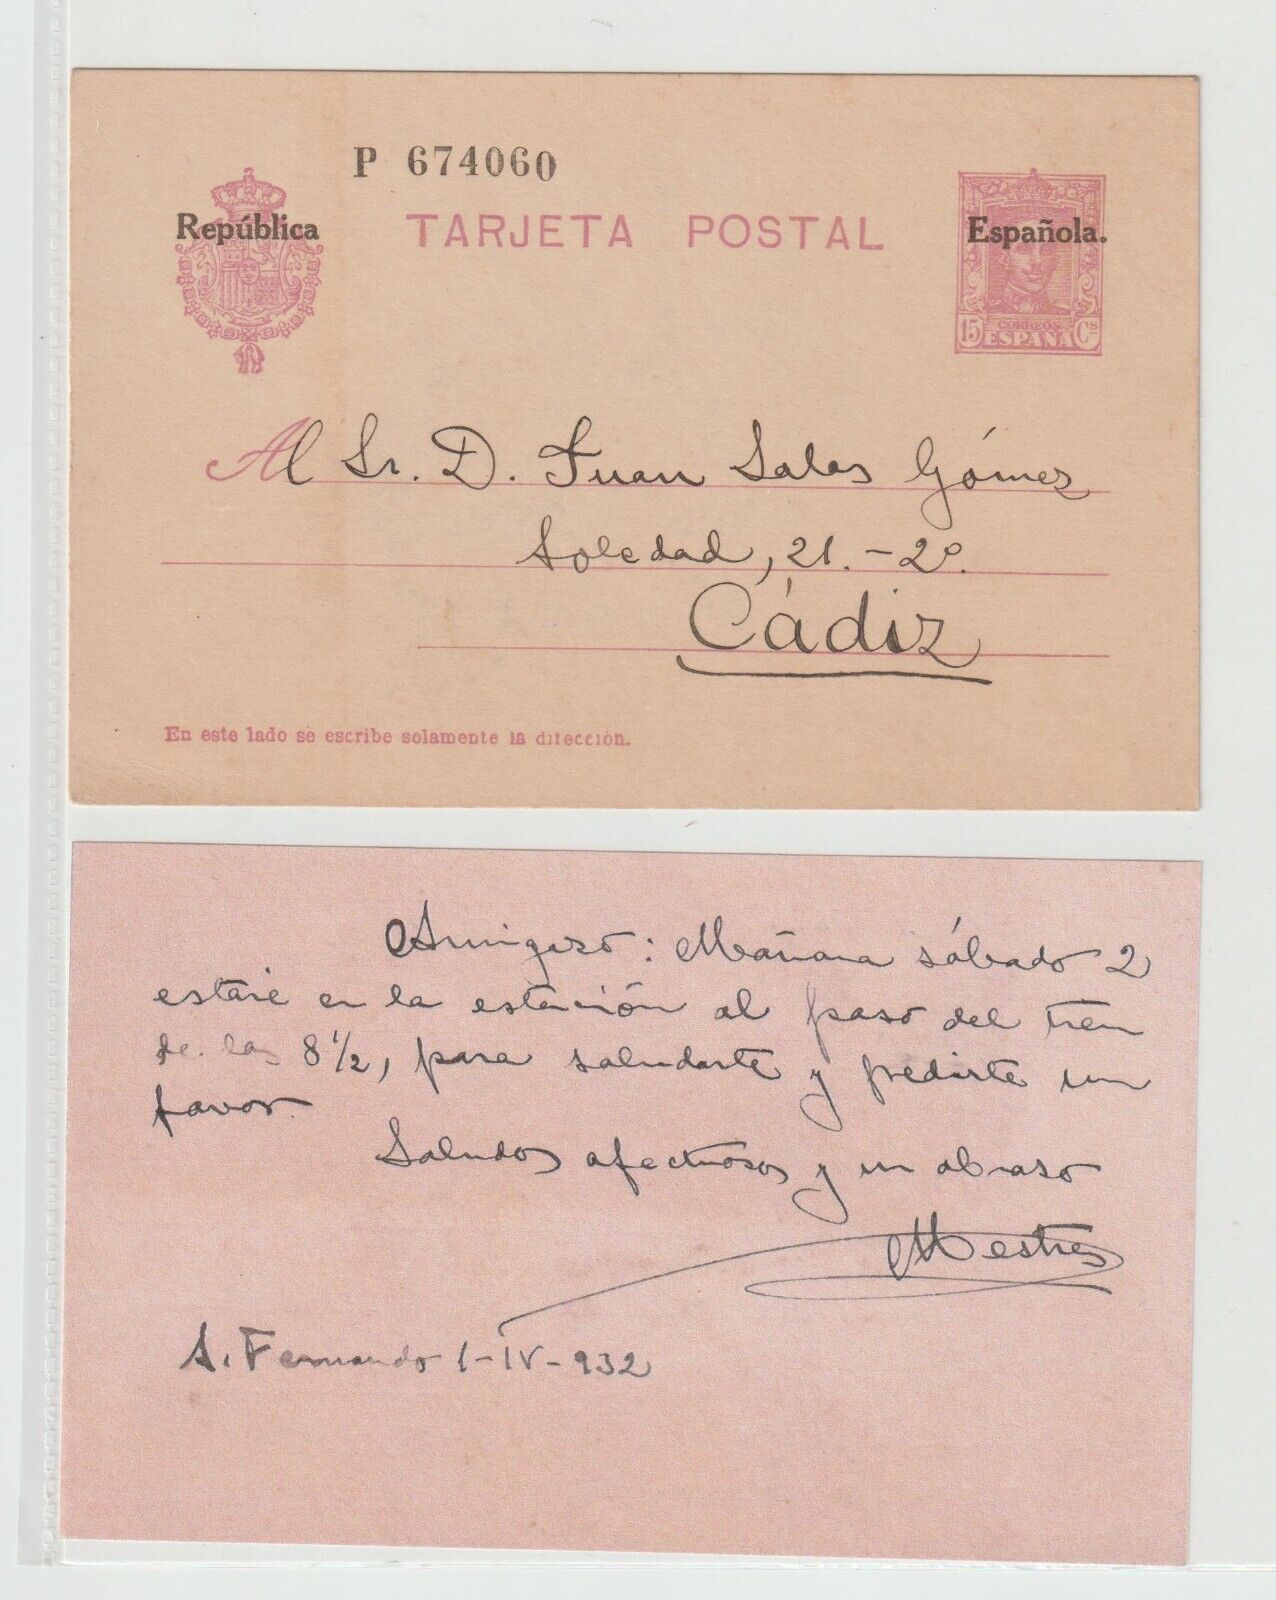 P 674060
República
TARJETA POSTAL
Española.
15 Cs
CORREOS
ESPAÑA
Al Sr. D. Juan Salas Gómez
Soledad, 21. - 2º.
Cádiz
En este lado se escribe solamente la dirección.
Amigazo: Mañana sábado 2
estaré en la estación al paso del tren
de las 8 1/2, para saludarte y pedirte un
favor.
Saludos afectuosos y un abrazo
Mestres
S. Fernando 1-IV-932